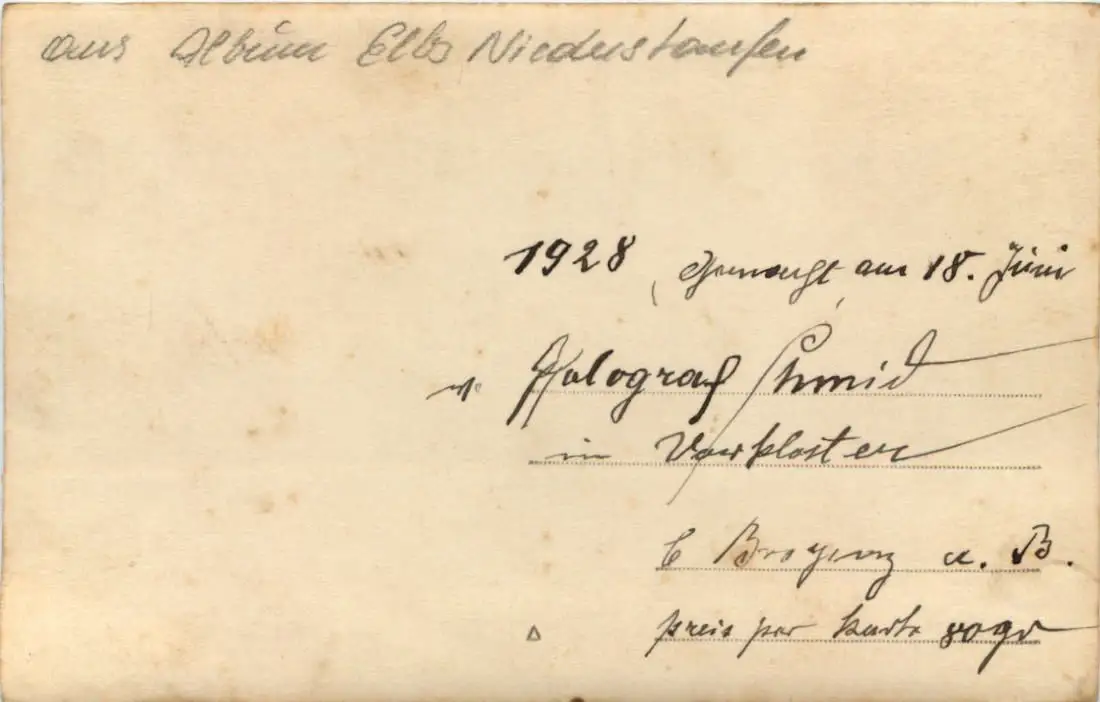 aus Album Elbs Niederstaufen
1928 gemacht am 18. Juni
v. Fotograf Schmid
in Vorkloster
b Bregenz a. B.
preis per Karte 80 gr